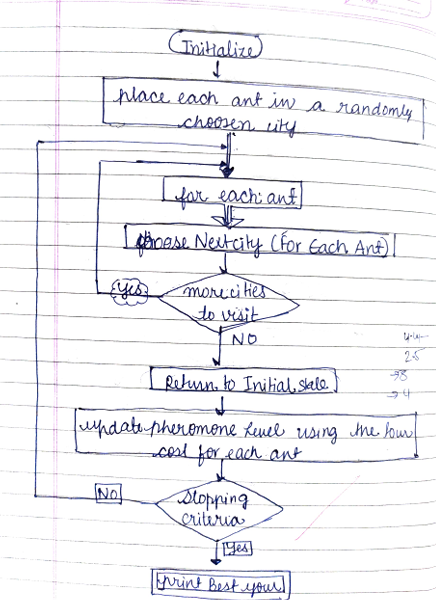 Initialize
place each ant in a randomly
choosen city
for each: ant
choose Next city (For Each Ant)
Yes
more cities
to visit
NO
Return to Initial state
update pheromone level using the tour
cost for each ant
NO
Stopping
criteria
Yes
print Best your
2.5
→ 4